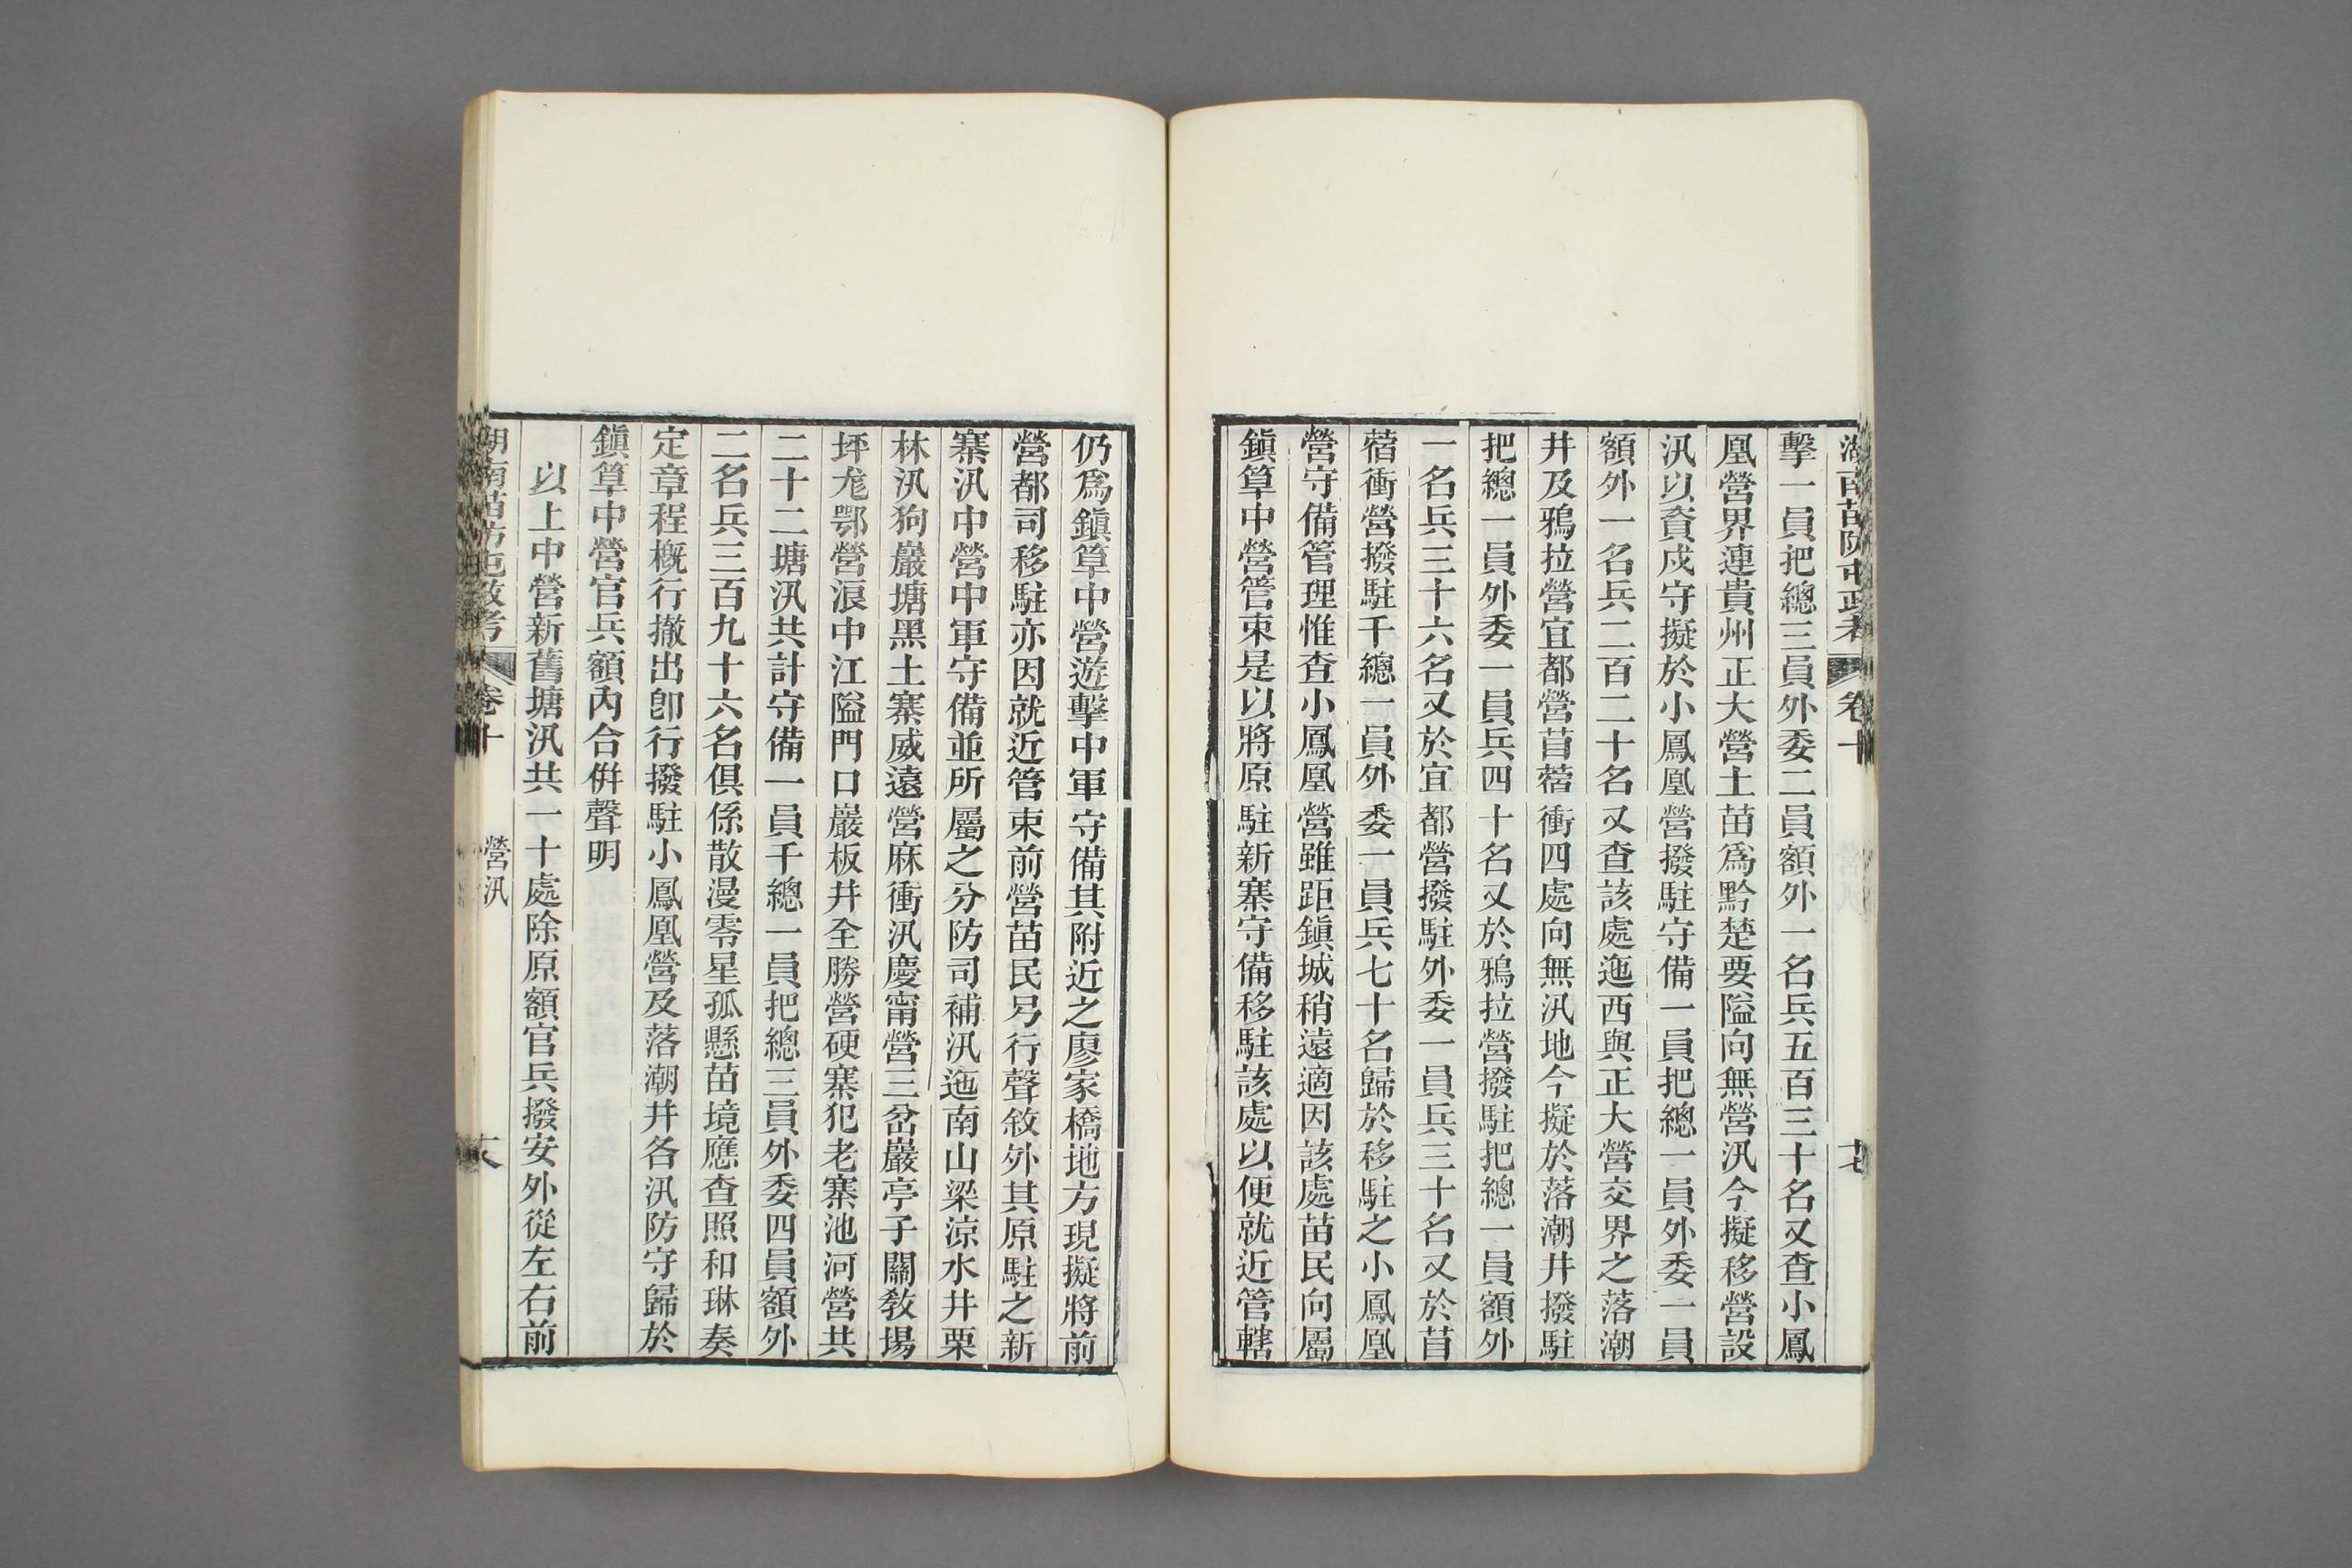 湖南苗防屯政考 卷十 十七
擊一員把總三員外委二員額外一名兵五百三十名又查小鳳
凰營界連貴州正大營土苗爲黔楚要隘向無營汛今擬移營設
汛以資戍守擬於小鳳凰營撥駐守備一員把總一員外委一員
額外一名兵二百二十名又查該處迤西與正大營交界之落潮
井及鴉拉營宜都營苜蓿衝四處向無汛地今擬於落潮井撥駐
把總一員外委一員兵四十名又於鴉拉營撥駐把總一員額外
一名兵三十六名又於宜都營撥駐外委一員兵三十名又於苜
蓿衝營撥駐千總一員外委一員兵七十名歸於移駐之小鳳凰
營守備管理惟查小鳳凰營雖距鎭城稍遠適因該處苗民向屬
鎭筸中營管束是以將原駐新寨守備移駐該處以便就近管轄
仍爲鎭筸中營遊擊中軍守備其附近之廖家橋地方現擬將前
營都司移駐亦因就近管束前營苗民另行聲敘外其原駐之新
寨汛中營中軍守備並所屬之分防司補汛迤南山梁涼水井栗
林汛狗巖塘黑土寨威遠營麻衝汛慶甯營三岔巖亭子關敎場
坪尨鄂營浪中江隘門口巖板井全勝營硬寨犯老寨池河營共
二十二塘汛共計守備一員千總一員把總三員外委四員額外
二名兵三百九十六名俱係散漫零星孤懸苗境應查照和琳奏
定章程概行撤出卽行撥駐小鳳凰營及落潮井各汛防守歸於
鎭筸中營官兵額內合併聲明
以上中營新舊塘汛共一十處除原額官兵撥安外從左右前
湖南苗防屯政考 卷十 營汛 十八